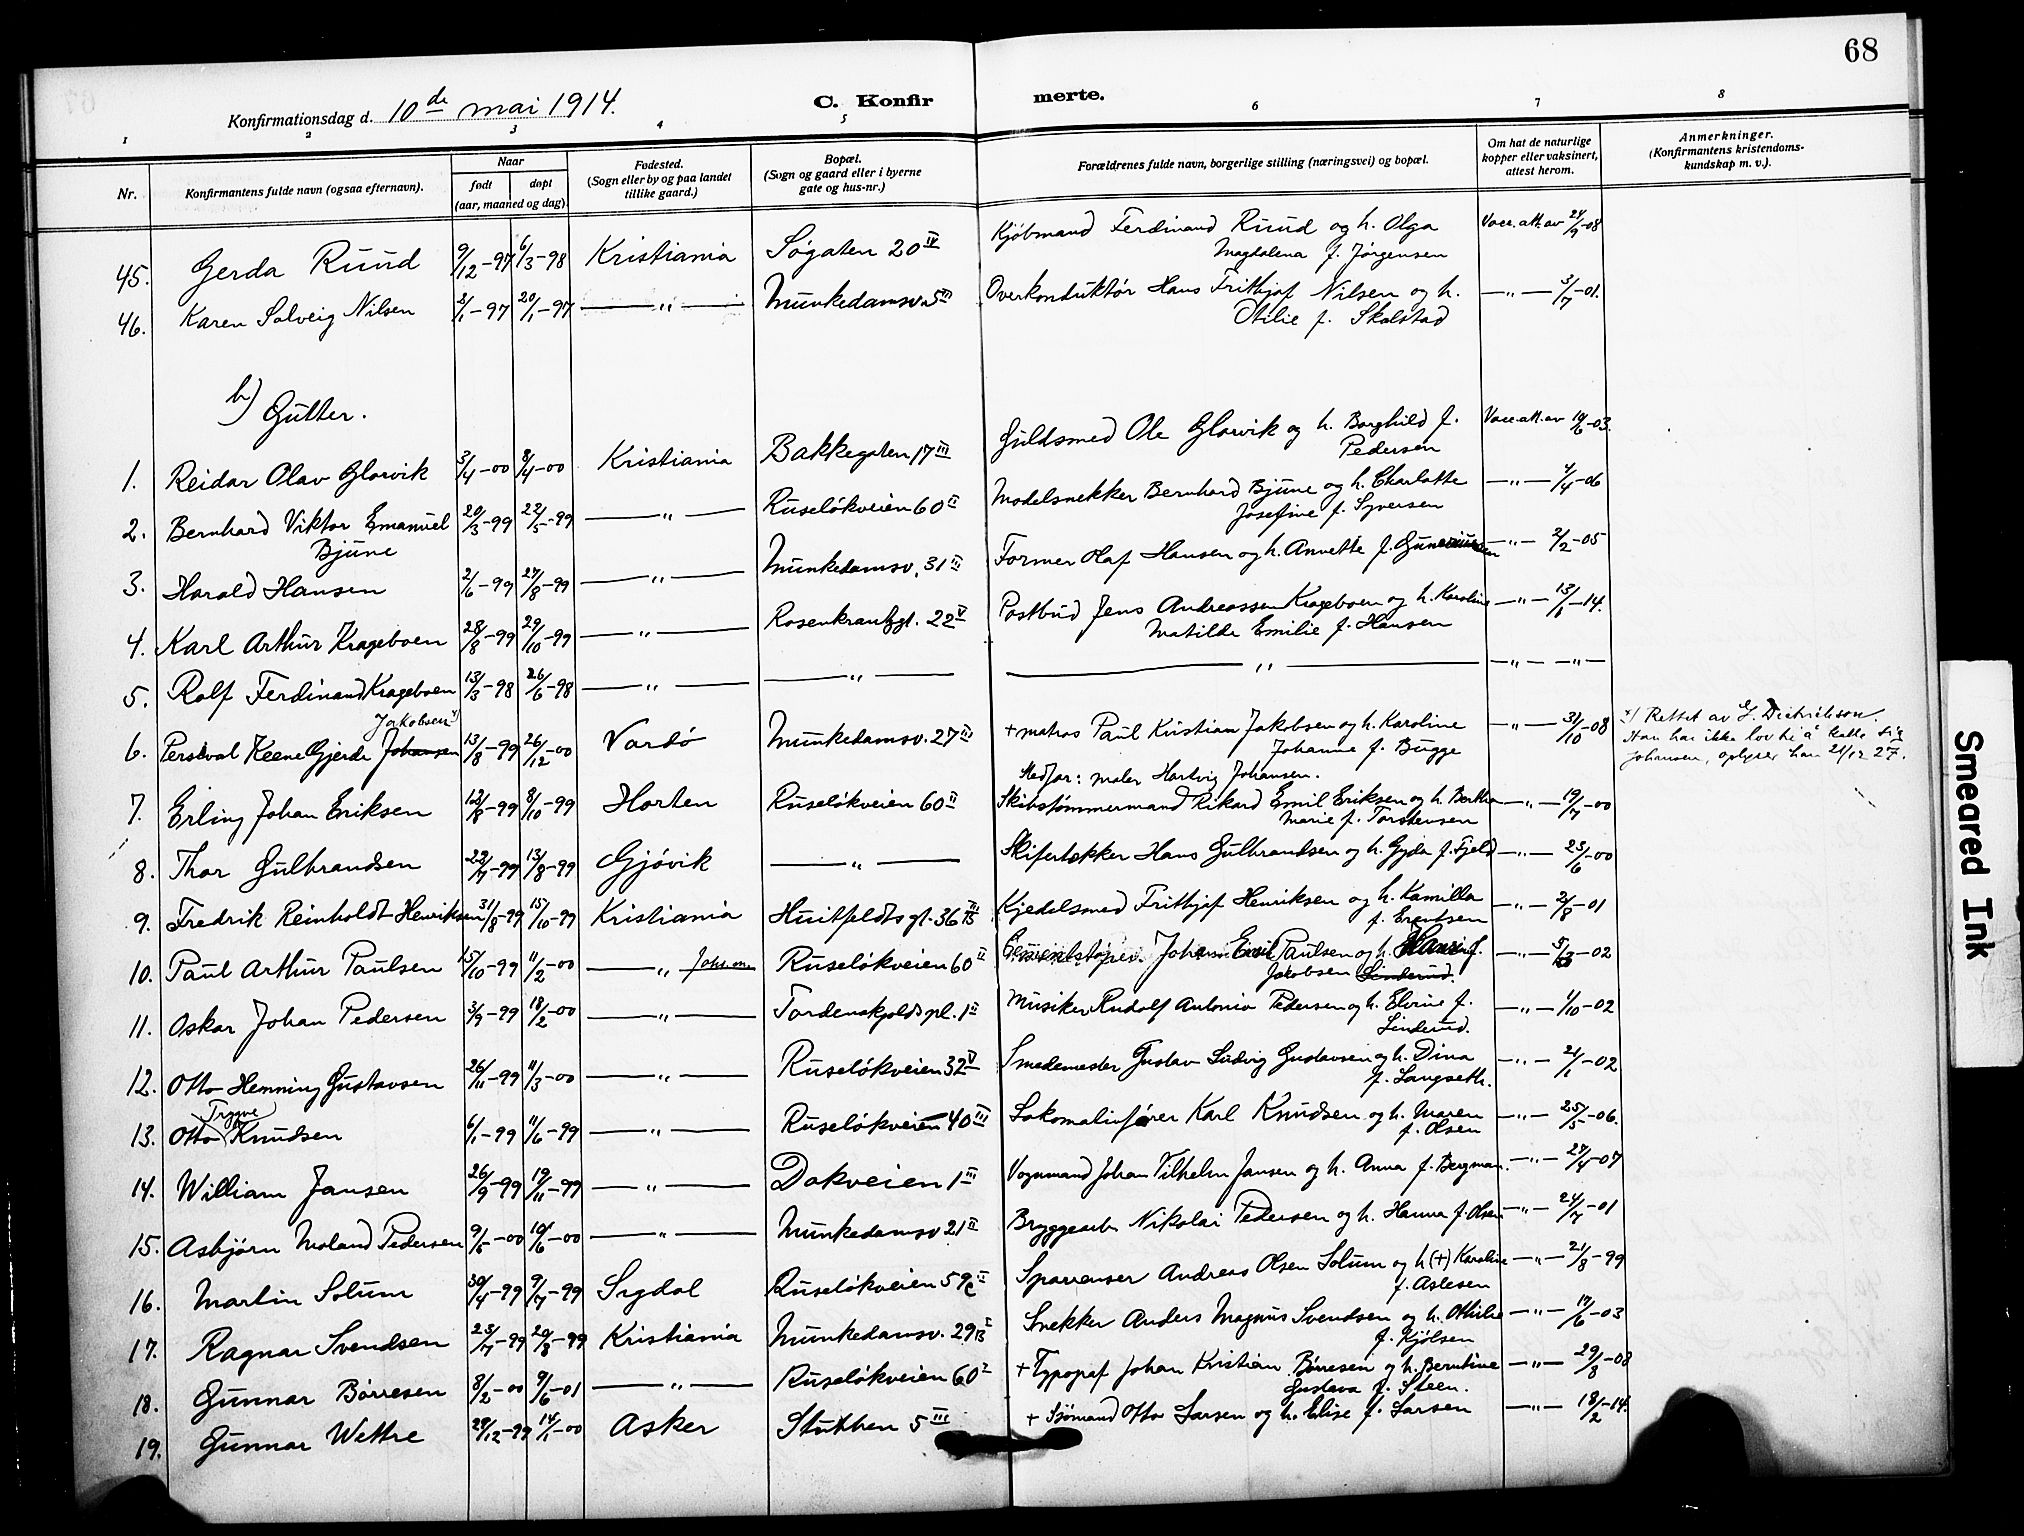 68
Konfirmationsdag d. 10de mai 1914.
C. Konfir merte.
1 2 3 4 5 6 7 8
Nr. Konfirmantens fulde navn (ogsaa efternavn). Naar født døpt (aar, maaned og dag). Fødested. (Sogn eller by og paa landet tillike gaard.) Bopæl. (Sogn og gaard eller i byerne gate og hus-nr.) Forældrenes fulde navn, borgerlige stilling (næringsvei) og bopæl. Om hat de naturlige kopper eller vaksinert, attest herom. Anmerkninger. (Konfirmantens kristendoms- kundskap m. v.).
45. Gerda Ruud 9/12-97 6/3-98 Kristiania Søgaten 20 IV Kjøbmand Ferdinand Ruud og h. Olga Vacc. att. av 24/9-08
Magdalena f. Jørgensen
46. Karen Solveig Nilsen 2/1-97 20/1-97 —"— Munkedamsv. 5 III Overkonduktør Hans Frithjof Nilsen og h. —"— 3/7-01.
Otilie f. Skolstad
b) Gutter.
1. Reidar Olav Glorvik 3/4-00 8/4-00 Kristiania Bakkegaten 17 III Guldsmed Ole Glorvik og h. Borghild f. Vacc. att. av 19/6-03.
Pedersen
2. Bernhard Viktor Emanuel 20/3-99 22/5-99 —"— Ruseløkveien 60 II Modelsnekker Bernhard Bjune og h. Charlotte —"— 4/4-06
Bjune Josefine f. Syversen
3. Harald Hansen 2/6-99 27/8-99 —"— Munkedamsv. 31 III Former Olaf Hansen og h. Annette f. —"— 2/2-05
4. Karl Arthur Krageboen 28/8-99 29/10-99 —"— Rosenkrantzgt. 22 V Postbud Jens Andreassen Krageboen og h. Karoline —"— 13/1-14.
Matilde Emilie f. Hansen
5. Rolf Ferdinand Krageboen 13/3-98 26/6-98 —"— —"— —"— —"— —"—
Jakobsen x)
6. Persival Keene Gjerde Johansen 13/8-99 26/12-00 Vardø Munkedamsv. 27 III + matros Paul Kristian Jakobsen og h. Karoline —"— 31/10-08 x) Rettet av E. Dietrichson.
Johanne f. Bugge Han har ikke lov til å kalle sig
Stedfar: maler Hartvig Johansen. Johansen, oplyser han 21/12 27.
7. Erling Johan Eriksen 12/8-99 8/10-99 Horten Ruseløkveien 60 II Skibstømmermand Rikard Emil Eriksen og h. Bertha —"— 19/7-00
Marie f. Torstensen
8. Thor Gulbrandsen 22/7-99 13/8-99 Gjøvik —"— Skifertækker Hans Gulbrandsen og h. Gyda f. Fjeld —"— 23/6-00
9. Fredrik Reinholdt Henriksen 31/8-99 15/10-99 Kristiania Huitfeldtsgt. 36 B III Kjedelsmed Frithjof Henriksen og h. Kamilla —"— 2/8-01
f. Erentsen
10. Paul Arthur Paulsen 15/10-99 11/2-00 —"— Ruseløkveien 60 II Cementstøper Johan Emil Paulsen og h. f. —"— 5/3-02
Jakobsen Linderud.
11. Oskar Johan Pedersen 3/9-99 18/2-00 —"— Tordenskjoldspl. 1 II Musiker Rudolf Antonio Pedersen og h. Elvine f. —"— 1/10-02
Linderud.
12. Otto Henning Gustavsen 26/11-99 11/3-00 —"— Ruseløkveien 32 V Smedemester Gustav Ludvig Gustavsen og h. Dina —"— 21/1-02
f. Langseth.
Trygve
13. Otto Knudsen 6/1-99 11/6-99 —"— Ruseløkveien 40 III Lokomotivfører Karl Knudsen og h. Maren —"— 25/5-06.
f. Olsen
14. William Jansen 26/9-99 19/11-99 —"— Dokveien 1 III Vognmand Johan Vilhelm Jansen og h. Anna f. Bergman. —"— 27/4-07
15. Asbjørn Moland Pedersen 9/5-00 10/6-00 —"— Munkedamsv 21 II Bryggearb. Nikolai Pedersen og h. Hanna f. Olsen —"— 24/7-01
16. Martin Solum 30/4-99 9/7-99 Sigdal Ruseløkveien 59c II Sparrenser Andreas Olsen Solum og h (+) Karoline —"— 21/8-99
f. Aslesen
17. Ragnar Svendsen 23/7-99 20/8-99 Kristiania Munkedamsv. 29 B I Snekker Anders Magnus Svendsen og h. Othilie —"— 17/6-03
f. Kjølsen
18. Gunnar Børresen 8/2-00 9/6-01 —"— Ruseløkveien 60 I + Typograf Johan Kristian Børresen og h. Berntine —"— 29/8-08
Gustava f. Steen.
19. Gunnar Wettre 29/12-99 14/1-00 Asker Stubben 5 III + Sjømand Otto Larsen og h. Elise f. Larsen —"— 18/2-14.
Smeared Ink